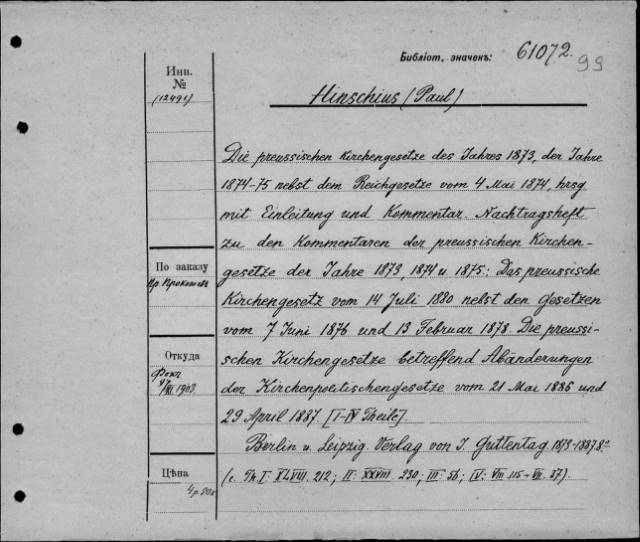 Библіот. значекъ: 61072. 99
Инв.
№
(12491)
Hinschius (Paul)
Die preussischen Kirchengesetze des Jahres 1873, der Jahre
1874-75 nebst dem Reichgesetze vom 4 Mai 1874, hrsg
mit Einleitung und Kommentar. Nachtragsheft
zu den Kommentaren der preussischen Kirchen-
gesetze der Jahre 1873, 1874 u. 1875: Das preussische
Kirchengesetz vom 14 Juli 1880 nebst den Gesetzen
vom 7 Juni 1876 und 13 Februar 1878. Die preussi-
schen Kirchengesetze betreffend Abänderungen
der Kirchenpolitischengesetze vom 21 Mai 1886 und
29 April 1887. [I-IV Theile].
Berlin u. Leipzig. Verlag von J. Guttentag. 1873-1887. 8°
(c. Th. I: XLVIII. 212; II: XXVIII. 230; III: 56; IV: VIII. 115 + VII. 87).
По заказу
Пр.
Откуда
Фокъ
XII. 1903.
Цѣна
4 р.